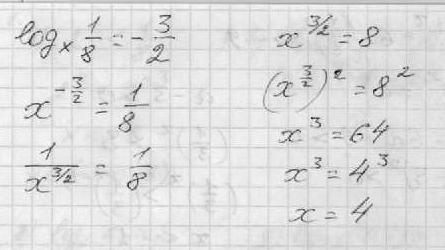 logₓ 1/8 = -3/2
x^(-3/2) = 1/8
1/x^(3/2) = 1/8
x^(3/2) = 8
(x^(3/2))² = 8²
x³ = 64
x³ = 4³
x = 4